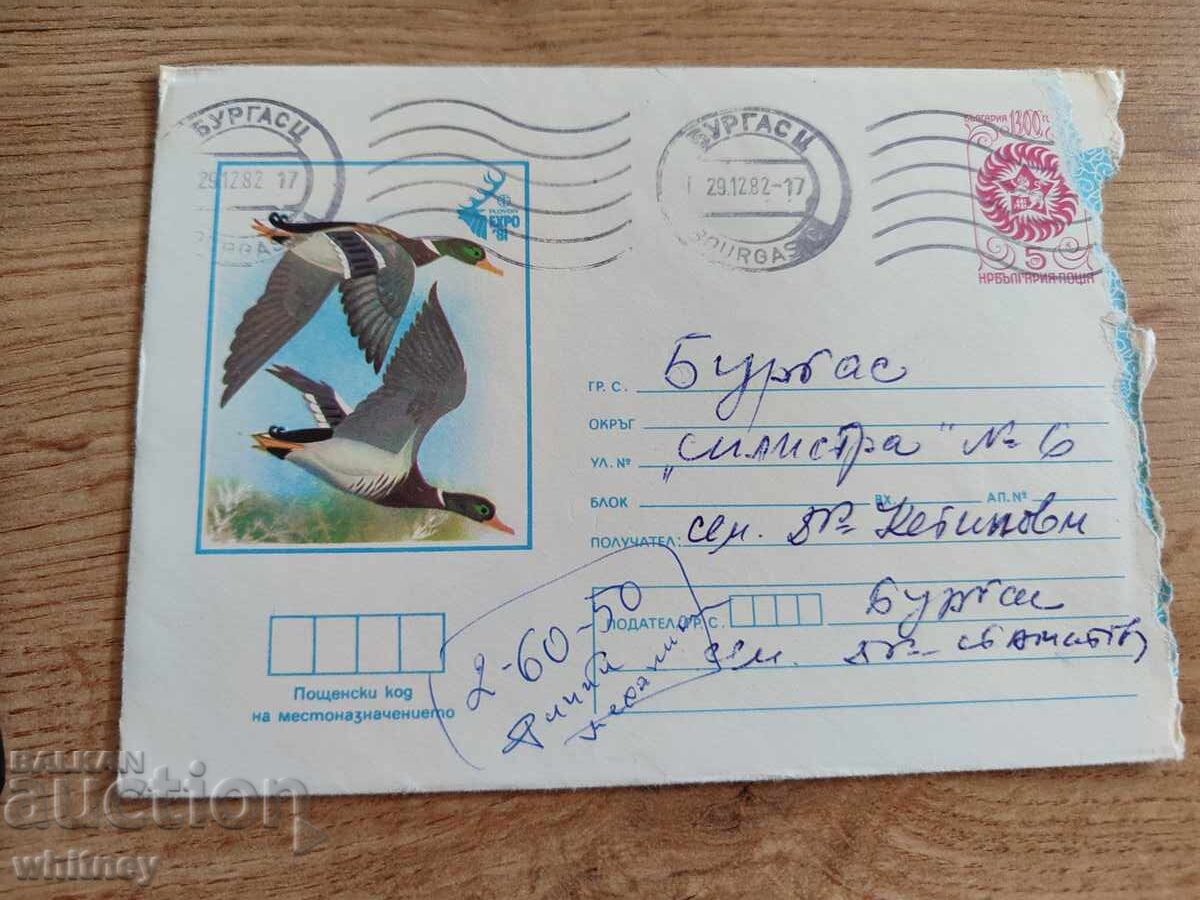 БУРГАС Ц
29.12.82 17
БУРГАС Ц
29.12.82-17
BOURGAS
БЪЛГАРИЯ 1300 Г.
5
НРБЪЛГАРИЯ ПОЩА
PLOVDIV
EXPO
'81
ГР. С. Бургас
ОКРЪГ
УЛ. № „Силистра" № 6
БЛОК ВХ. АП. №
ПОЛУЧАТЕЛ: сем. Д-р
ПОДАТЕЛ: ГР. С. Бургас
сем. Д-р
2-60-50
Пощенски код
на местоназначението
BALKAN
auction
whitney